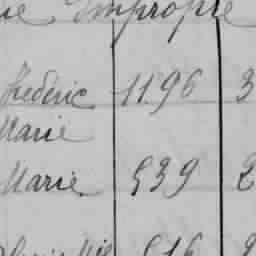 Impropre
Frédéric 1196 3
Marie
Marie 539 2
516